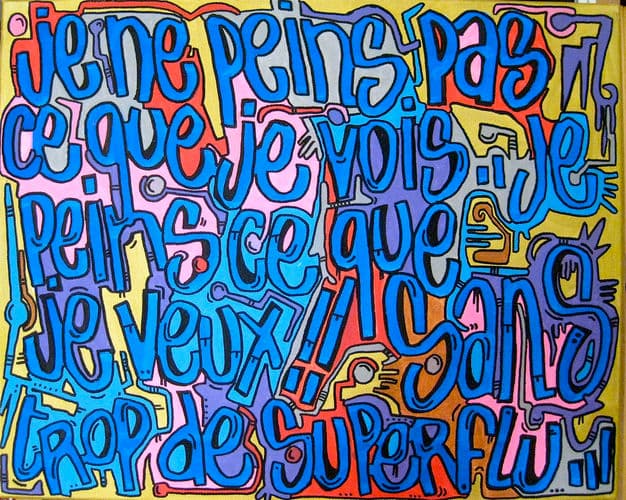 je ne peins pas
ce que je vois.. je
peins ce que
je veux!! sans
trop de superflu...